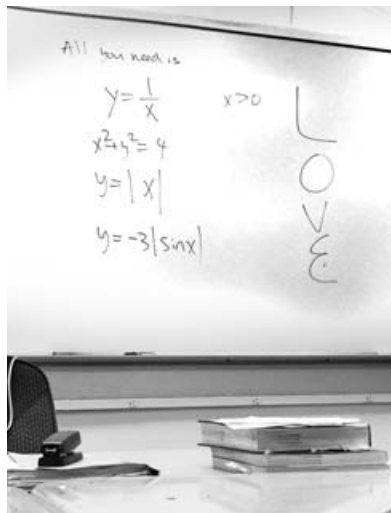 All you need is
y = 1/x x>0 L
x²+y²=4 O
y=|x| V
y=-3|sinx| E